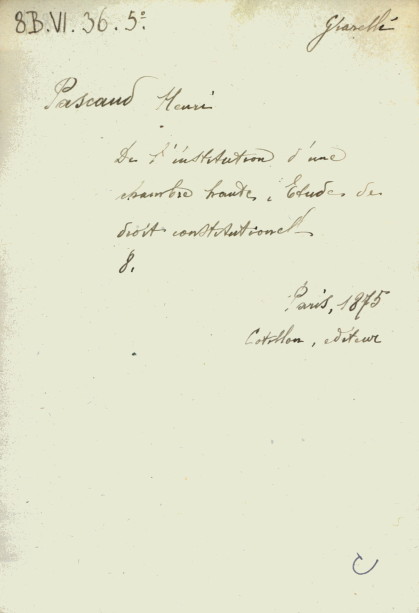 8B.VI.36.5º
Pascaud Henri
De l'institution d'une
chambre haute; Etudes de
droit constitutionel
8.
Paris, 1875
Cotillon, editeur
C